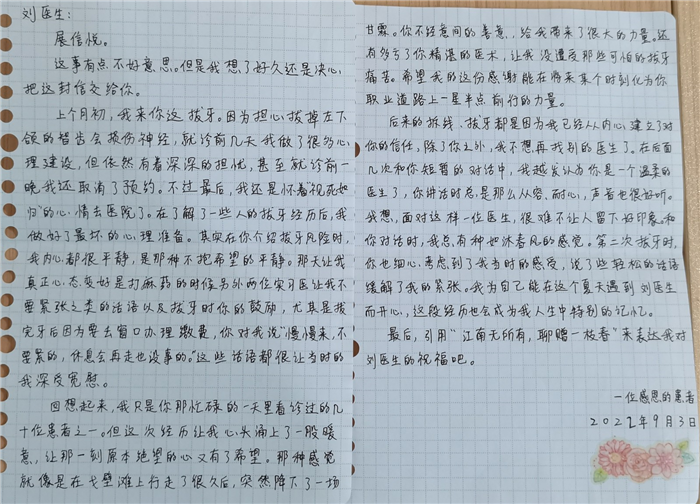 刘医生:
展信悦。
这事有点不好意思。但是我想了好久还是决心
把这封信交给你。
上个月初,我来你这拔牙。因为担心拔掉左下
颌的智齿会损伤神经,就诊前几天我做了很多心
理建设,但依然有着深深的担忧,甚至就诊前一
晚我还取消了预约。不过最后,我还是怀着“视死如
归”的心情去医院了。在了解了一些人的拔牙经历后,我
做好了最坏的心理准备。其实在你介绍拔牙风险时,
我内心都很平静,是那种不抱希望的平静。那天让我
真正心态变好是打麻药的时候另外两位实习医让我不
要紧张之类的话语以及拔牙时你的鼓励,尤其是拔
完牙后因为要去窗口办理缴费,你对我说“慢慢来,不
要紧的,休息会再走也没事的。”这些话语都很让当时的
我深受宽慰。
回想起来,我只是你那忙碌的一天里看诊过的几
十位患者之一。但这次经历让我心头涌上了一股暖
意,让那一刻原本绝望的心又有了希望。那种感觉
就像是在戈壁滩上行走了很久后,突然降下了一场
甘霖。你不经意间的善意,给我带来了很大的力量。还
有多亏了你精湛的医术,让我没遭受那些可怕的拔牙
痛苦。希望我的这份感谢能在将来某个时刻化为你
职业道路上一星半点前行的力量。
后来的拆线、拔牙都是因为我已经从内心建立了对
你的信任,除了你之外,我不想再找别的医生了。在后面
几次和你短暂的对话中,我越发认为你是一个温柔的
医生了,你讲话时总是那么从容、耐心,声音也很好听。
我想,面对这样一位医生,很难不让人留下好印象。和
你对话时,我总有种如沐春风的感觉。第二次拔牙时,
你也细心考虑到了我当时的感受,说了些轻松的话语
缓解了我的紧张。我为自己能在这个夏天遇到刘医生
而开心,这段经历也会成为我人生中特别的记忆。
最后,引用“江南无所有,聊赠一枝春”来表达我对
刘医生的祝福吧。
一位感恩的患者
2022年9月3日